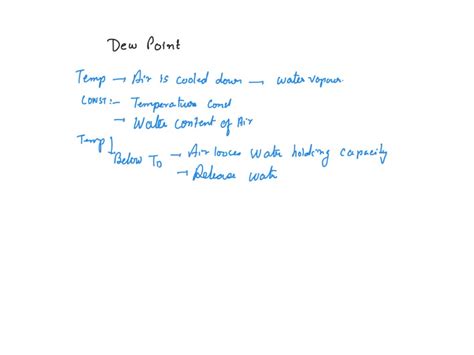 Dew Point
Temp → Air is cooled down → water vapour
CONST:- Temperature Const
→ Water content of Air
Temp↓
Below TD → Air looses water holding capacity
→ Release wate